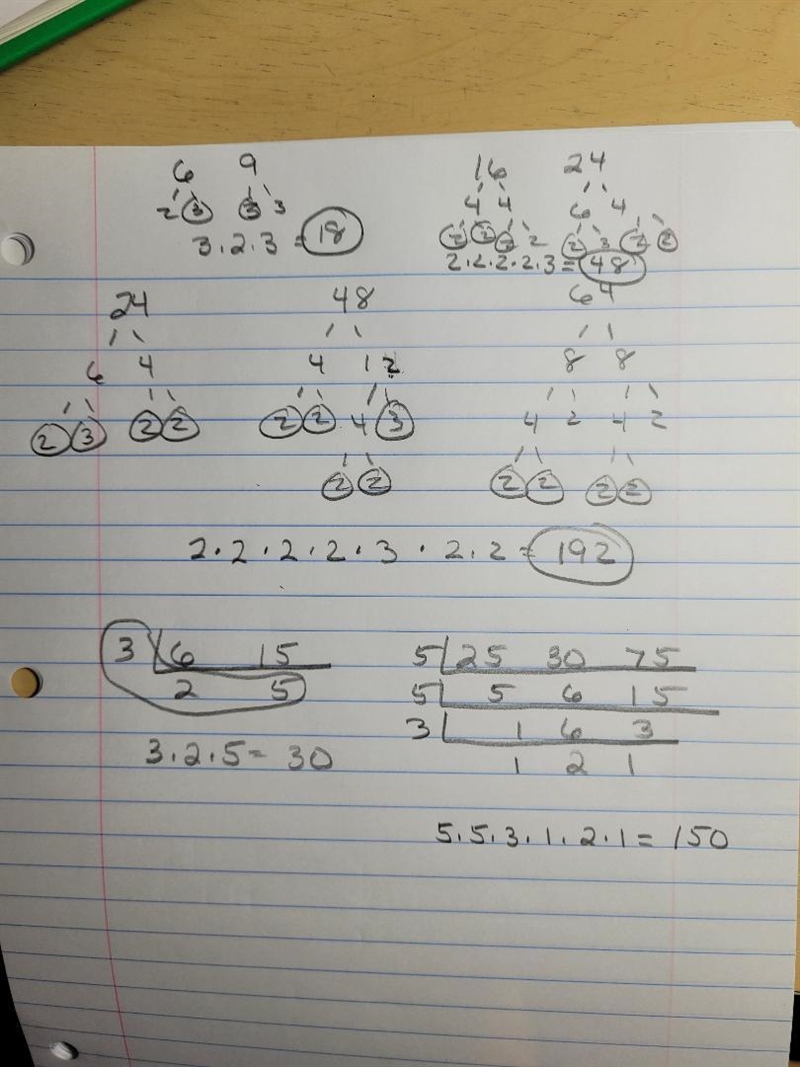 6 9 16 24
2 3 3 3 4 4 6 4
3.2.3 = 18 2 2 2 2 2 3 2 2
2.2.2.2.3 = 48
24 48 64
6 4 4 12 8 8
2 3 2 2 2 2 4 3 4 2 4 2
2 2 2 2 2 2
2.2.2.2.3.2.2 = 192
3 6 15 5 25 30 75
2 5 5 5 6 15
3.2.5 = 30 3 1 6 3
1 2 1
5.5.3.1.2.1 = 150